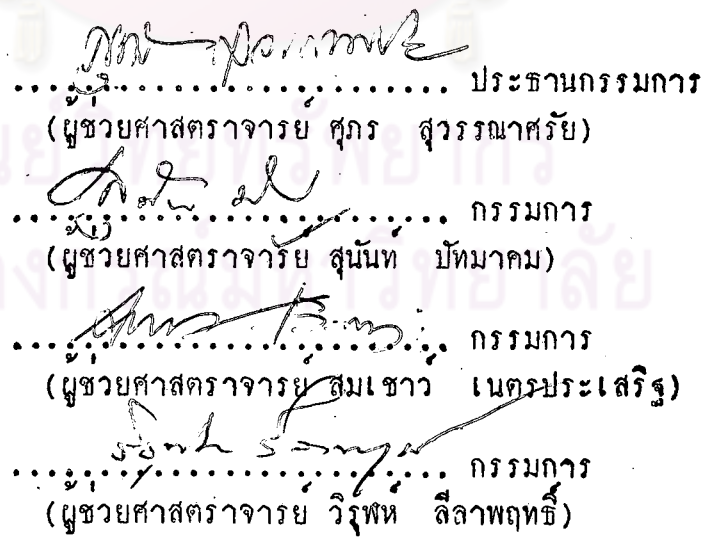 .............................. ประธานกรรมการ
(ผู้ช่วยศาสตราจารย์ ศุภร สุวรรณาศรัย)
.............................. กรรมการ
(ผู้ช่วยศาสตราจารย์ สุนันท์ ปัทมาคม)
.............................. กรรมการ
(ผู้ช่วยศาสตราจารย์ สมเชาว์ เนตรประเสริฐ)
.............................. กรรมการ
(ผู้ช่วยศาสตราจารย์ วิรุฬห์ ลีลาพฤทธิ์)